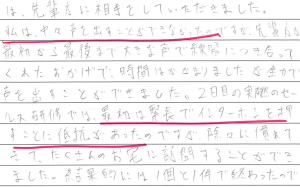 は、先輩方に相手をしていただきました。
私は、中々声を出すことができないでいたのですが、先輩方が
最初から最後まで大きな声で練習につき合って
くれたおかげで、時間はかかりましたが全力で
声を出すことができました。2日目の実際のセー
ルス研修では、最初は緊張でインターホンを押
すことに抵抗があったのですが徐々に慣れて
きて、たくさんのお宅に訪問することができ
ました。結果的には1個と1件で終わったので